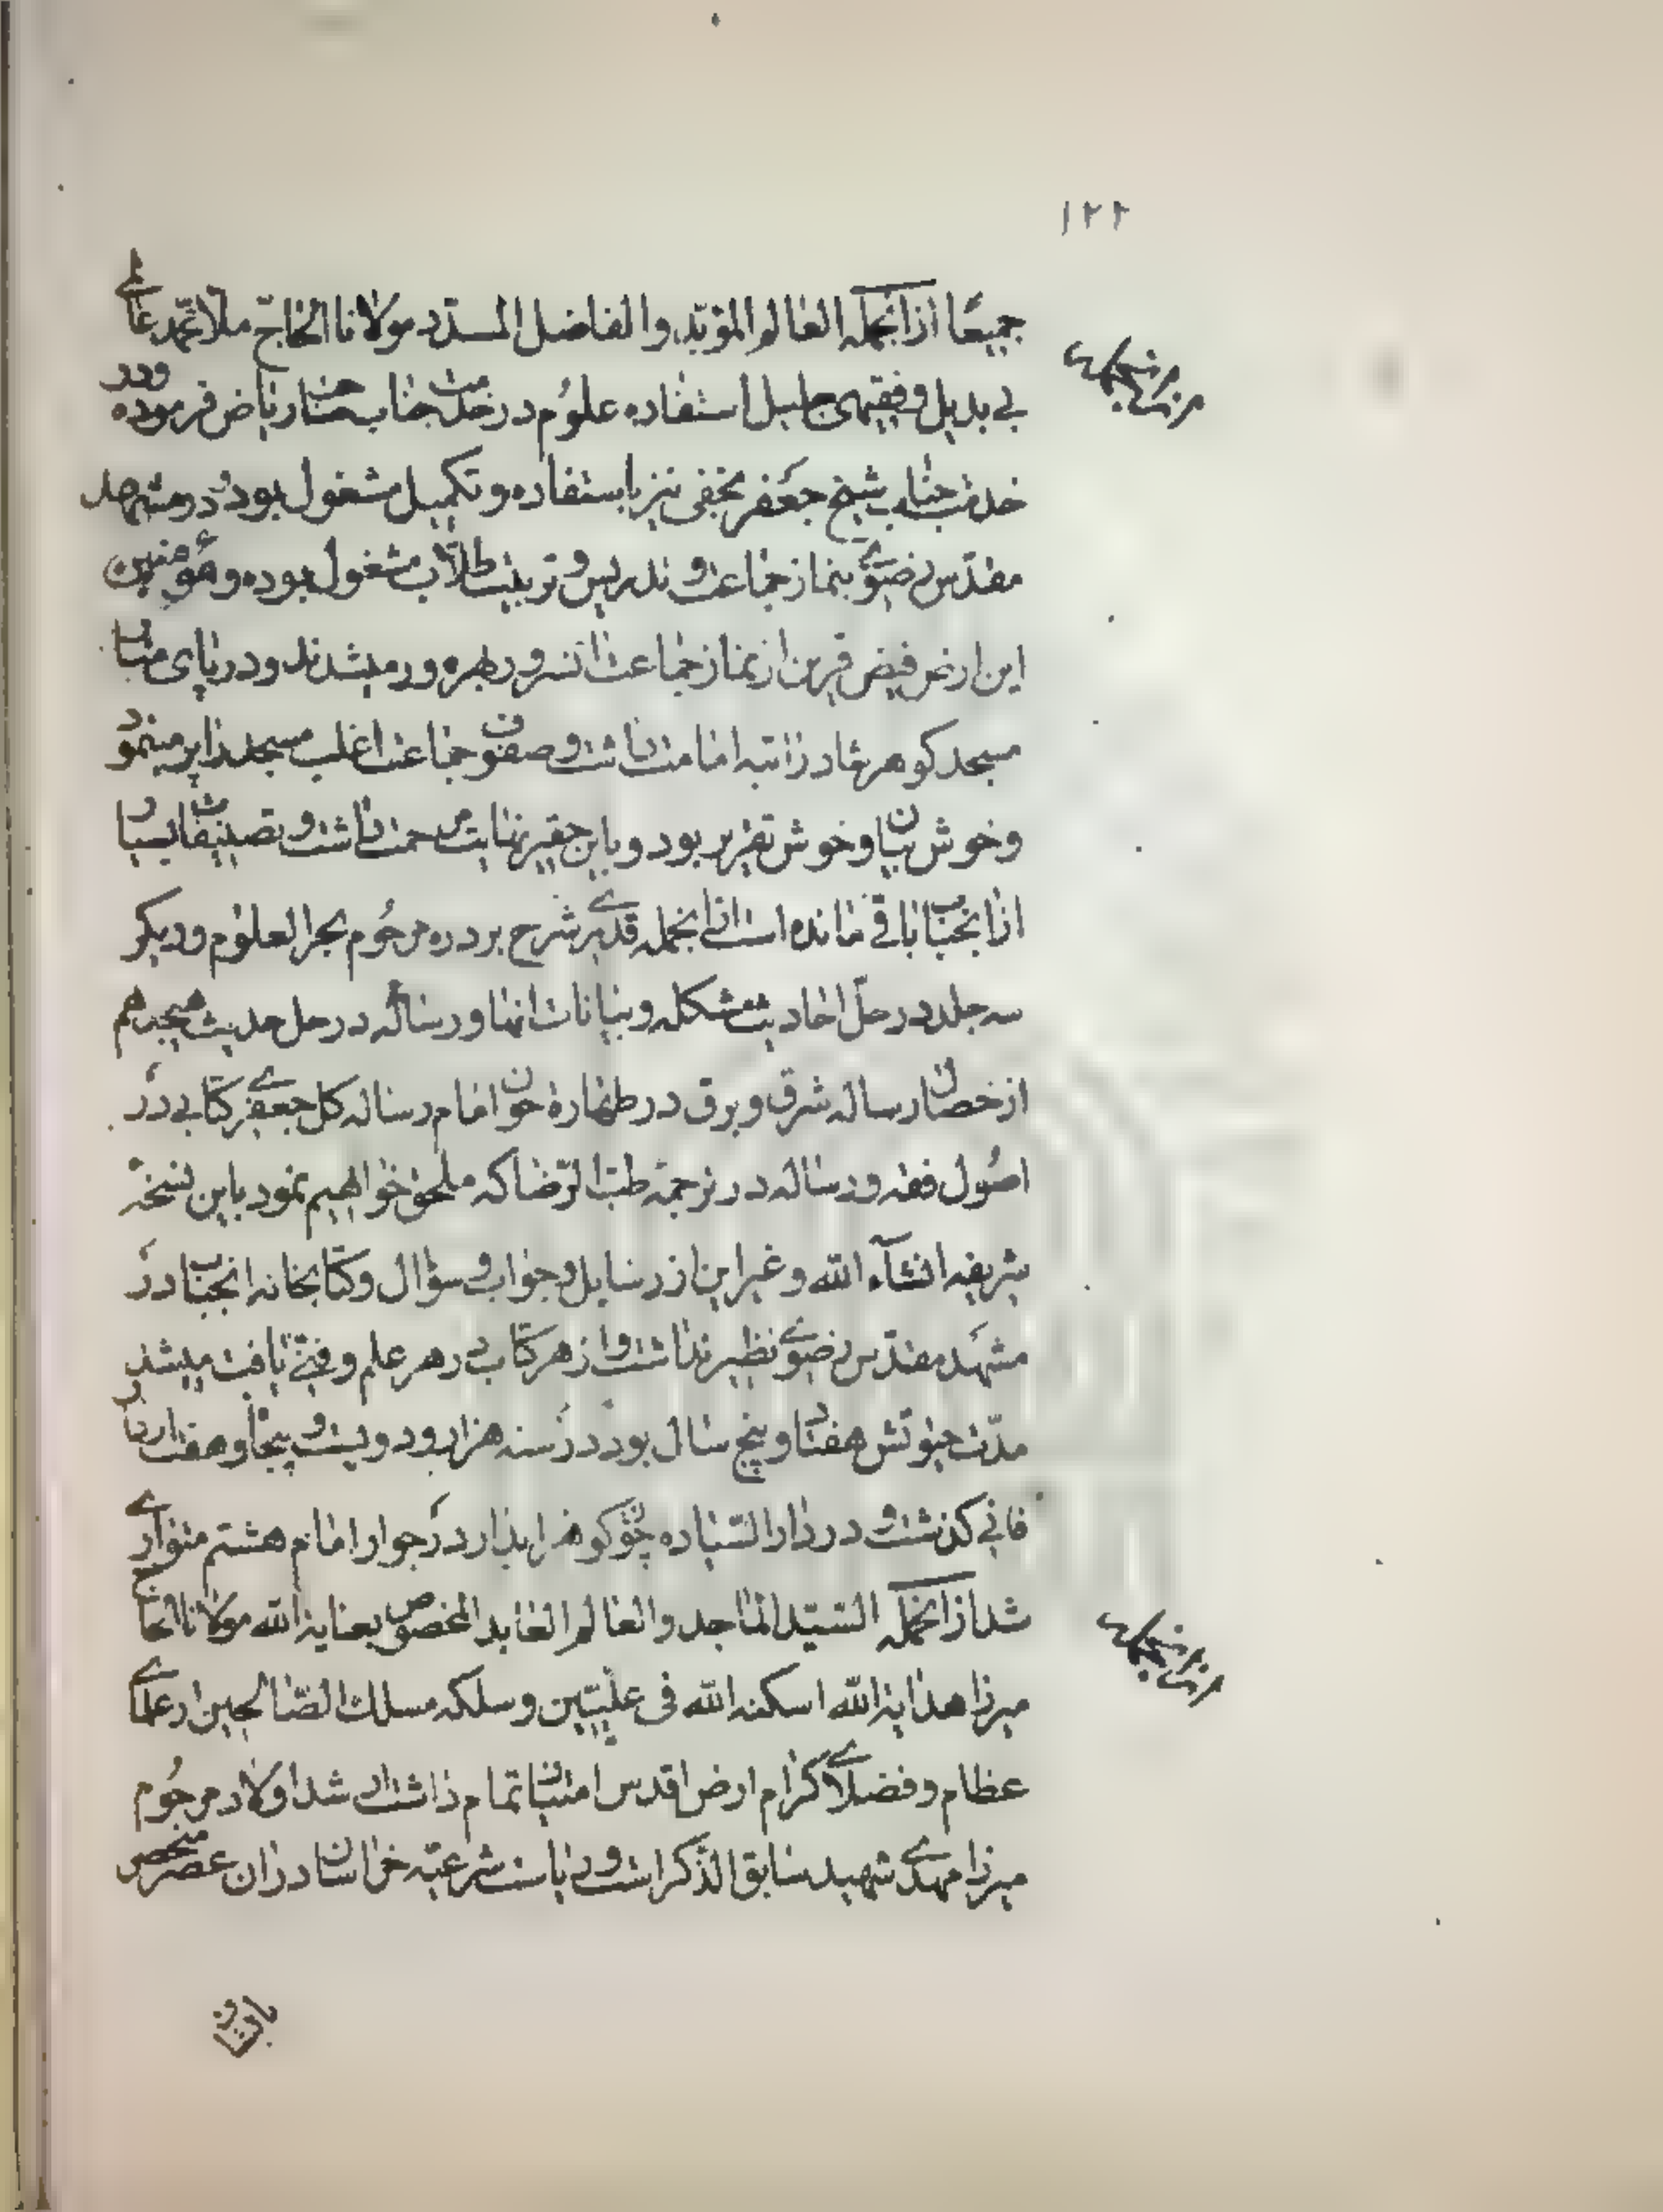 ۱۲۲
جمیعًا ازانجمله العالم المؤیّد والفاضل المسدّد مولانا الحاج ملا محمد عالمی
بی بدیل وفقیهی جلیل استفاده علوم در خدمت جناب صاحب ریاض فرموده ودر
خدمت جناب شیخ جعفر نجفی نیز باستفاده و تکمیل مشغول بود و در مشهد
مقدّس رضوی بنماز جماعت و تدریس و تربیت طلّاب مشغول بوده و مؤمنین
این ارض فیض قرین از نماز جماعت انسرور بهره ور میشدند و در پای
مسجد کوهرشاد رتبه امامت داشت و صفوف جماعت اغلب مسجد را پر مینمود
وخوش بیان وخوش تقریر بود و باین حقیر نهایت مرحمت داشت و تصنیفات بسیار
ازانجناب باقی مانده است ازانجمله قدری شرح بر دره مرحوم بحر العلوم ودیکر
سه جلد در حلّ احادیث مشکله وبیانات انها ورساله در حل حدیث هیجدهم
از خصال رساله شرق و برق در طهارة خون امام رساله کل جعفری کتابی در
اصُول فقه ورساله در ترجمهٔ طبّ الرّضا که ملحق خواهیم نمود باین نسخهٔ
شریفه انشآء الله و غیر این از رسایل وجواب و سؤال وکتابخانه انجناب در
مشهد مقدّس رضوی نظیر نداشت و از هر کتاب در هر علم و فنّی یافت میشد
مدّت حیوتش هفتاد و پنج سال بود در سنه هزار و دویست و پنجاه و هفت از دار
فانی کذشت و در دار السّیاده چون کوهر ابدار در جوار امام هشتم متواری
شد ازانجمله السّیّد الماجد والعالم العابد المخصوص بعنایة الله مولانا الحاج
میرزا هدایة الله اسکنه الله فی علّیّین و سلکه مسلك الصّالحین از علمای
عظام و فضلای کرام ارض اقدس امتیاز تمام داشت ارشد اولاد مرحُوم
میرزا مهدی شهید سابق الذّکر است و ریاست شرعیّه خراسان دران عصر منحصر
ازانجمله